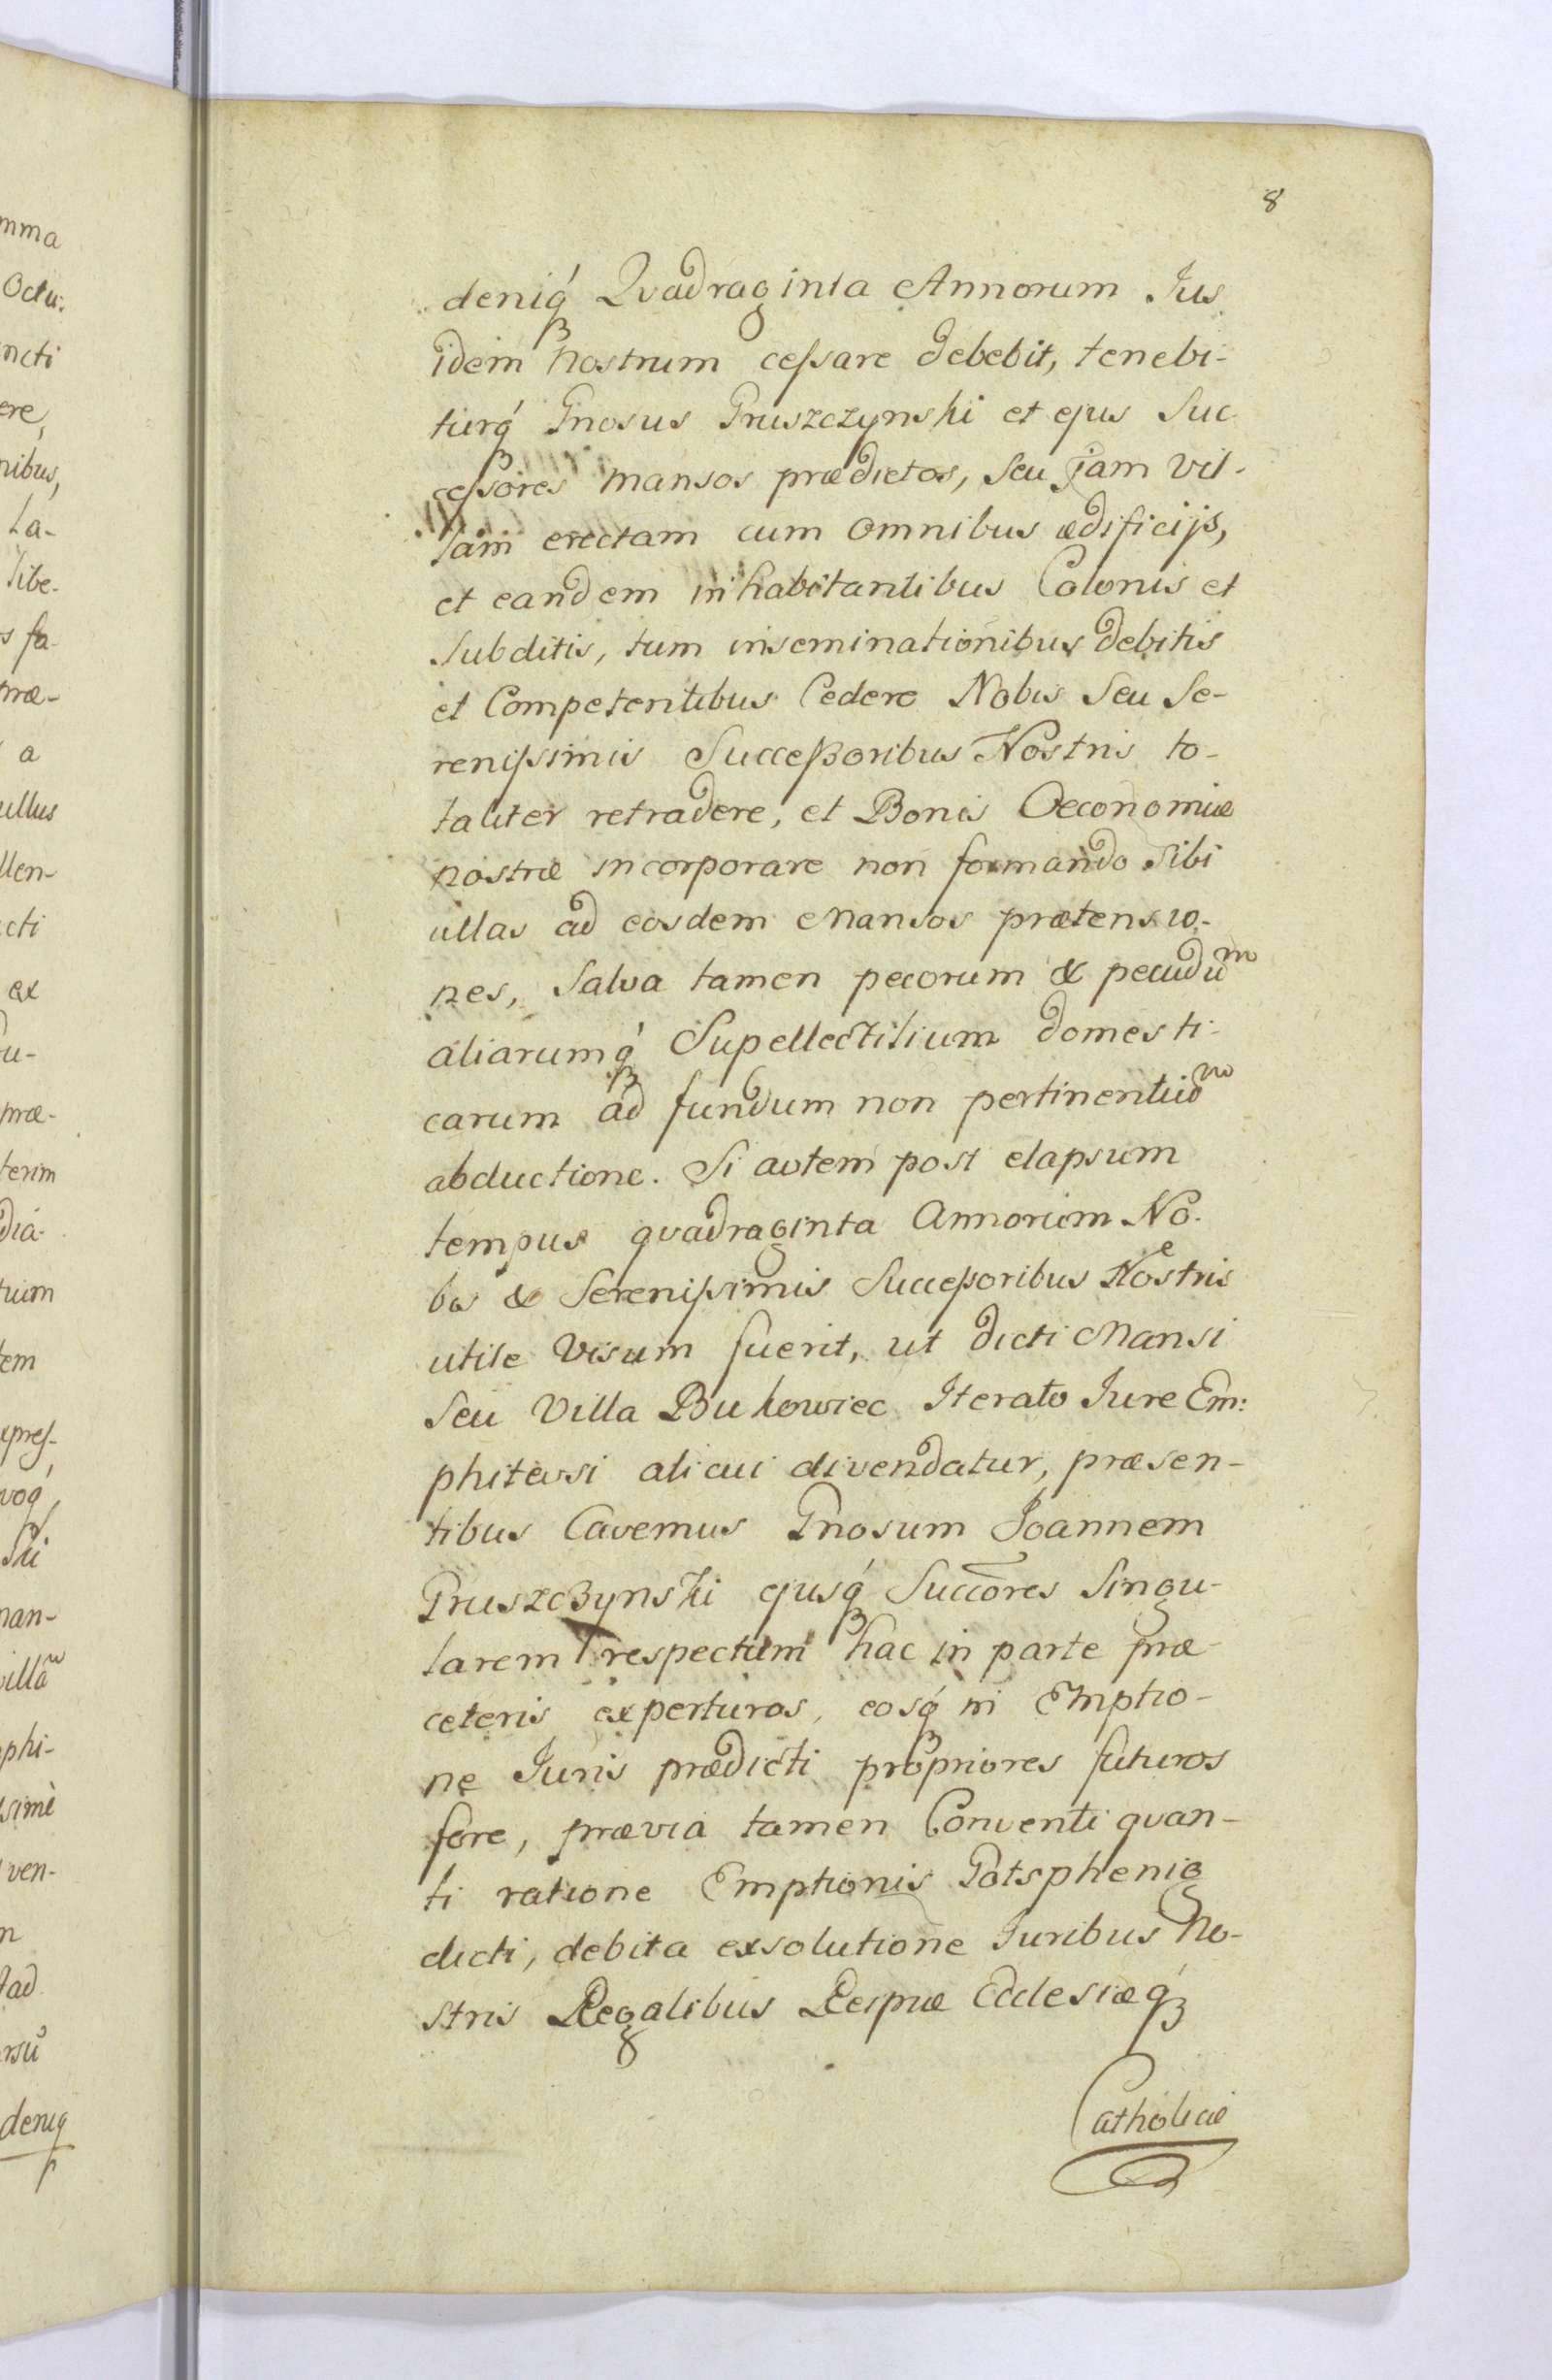 8
deniq́ꝫ Qvadraginta Annorum Jus
idem nostrum cessare debebit, tenebi-
turq́ꝫ Gnosus Pruszczynski et ejus Suc
cessores mansos prædictos, seu jam vil-
lam erectam cum omnibus ædificijs,
et eandem inhabitantibus Colonis et
Subditis, tum inseminationibus debitis
et Competentibus Cedere Nobis seu Se-
renissimis Successoribus Nostris to-
taliter retradere, et Bonis Oeconomiæ
nostræ incorporare non formando sibi
ullas ad eosdem Mansos prætensio-
nes, Salva tamen pecorum & pecudum
aliarumq́ꝫ Supellectilium domesti-
carum ad fundum non pertinentium
abductione. Si avtem post elapsum
tempus qvadraginta Annorum No-
bis & Serenissimis Successoribus Nostris
utile visum fuerit, ut dicti Mansi
seu Villa Bukowiec Iterato Jure Em:
phitevsi alicui divendatur, præsen-
tibus Cavemus Gnosum Joannem
Pruszczynski ejusq́ꝫ Succores Singu-
larem respectum hac in parte præ
ceteris experturos, eosq́ꝫ in Emptio-
ne Juris prædicti propriores futuros
fore, prævia tamen Conventi qvan-
ti ratione Emptionis Gotsphenig
dicti, debita exsolutione Juribus No-
stris Regalibus Reipuæ Ecclesiæq́ꝫ
Catholicæ